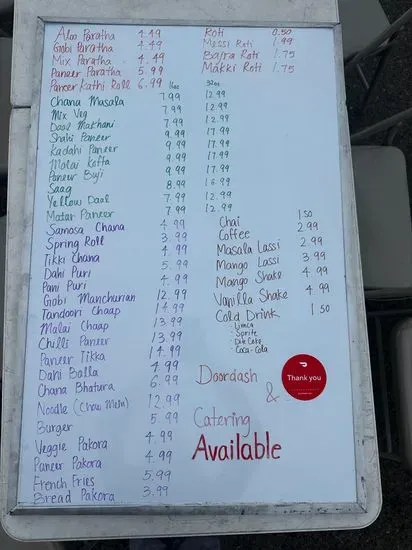 Aloo Paratha 4.49
Gobi Paratha 4.49
Mix Paratha 4.49
Paneer Paratha 5.99
Paneer Kathi Roll 6.99
Roti 0.50
Messi Roti 1.99
Bajra Roti 1.75
Makki Roti 1.75
16oz 32oz
Chana Masala 7.99 12.99
Mix Veg 7.99 12.99
Daal Makhani 7.99 12.99
Shahi Paneer 9.99 17.99
Kadahi Paneer 9.99 17.99
Malai Kofta 9.99 17.99
Paneer Buji 9.99 17.99
Saag 8.99 16.99
Yellow Daal 7.99 12.99
Matar Paneer 7.99 12.99
Samosa Chana 4.99
Spring Roll 3.99
Tikki Chana 4.99
Dahi Puri 5.99
Pani Puri 4.99
Gobi Manchurian 12.99
Tandoori Chaap 14.99
Malai Chaap 13.99
Chilli Paneer 13.99
Paneer Tikka 14.99
Dahi Balla 4.99
Chana Bhatura 6.99
Noodle (Chow Mein) 12.99
Burger 5.99
Veggie Pakora 4.99
Paneer Pakora 4.99
French Fries 5.99
Bread Pakora 3.99
Chai 1.50
Coffee 2.99
Masala Lassi 2.99
Mango Lassi 3.99
Mango Shake 4.99
Vanilla Shake 4.99
Cold Drink 1.50
- Limca
- Sprite
- Diet Coke
- Coca-Cola
Doordash
&
Catering
Available
Thank you